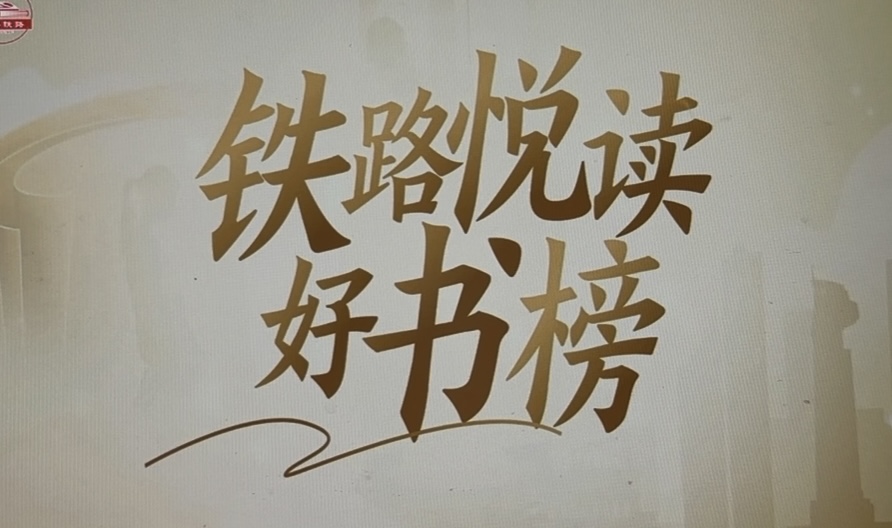 铁路悦读
好书榜